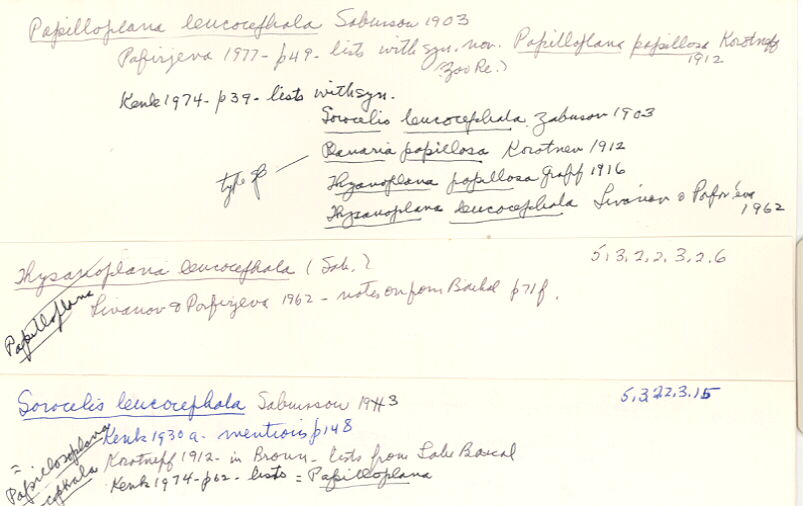 Papilloplana leucocephala Sabussow 1903
Pofirjeva 1977 - p49 - lists with syn. nov. Papilloplana papillosa Korotneff
1912
Zoo Re.)
Kenk 1974 - p39 - lists with syn.
Sorocelis leucocephala Zabusov 1903
type of — Planaria papillosa Korotnev 1912
Thysanoplana papillosa Graff 1916
Thysanoplana leucocephala Livanov & Porfir'eva
1962
Thysanoplana leucocephala (Sab.) 5,3,2,2,3,2,6
Papilloplana
Livanov & Porfirjeva 1962 - notes on from Baikal p71f.
Sorocelis leucocephala Sabussow 1903 5,3,2,2,3,15
Kenk 1930a - mentions p148
Korotneff 1912 - in Brown - lists from Lake Baical
Kenk 1974 - p62 - lists = Papilloplana